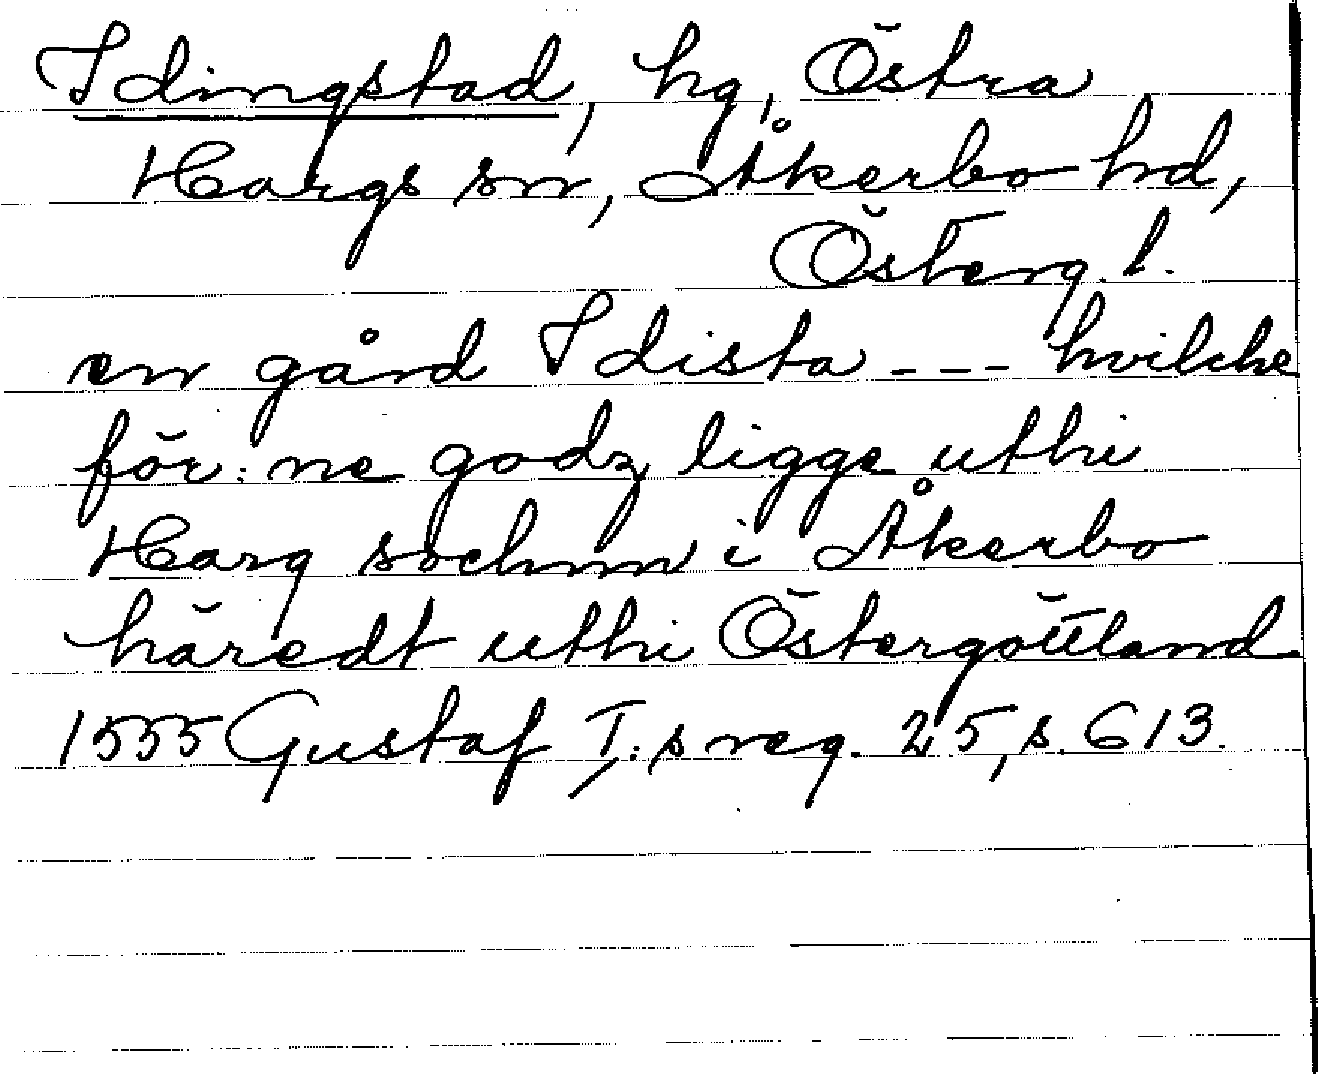 Idingstad, hg, Östra
Hargs sn, Åkerbo hd,
Österg. l.
en gård Idista --- hvilche
för:ne godz ligge uthi
Harg sochnn i Åkerbo
häredt uthi Östergöttland
1555 Gustaf I:s reg. 25, s. 613.